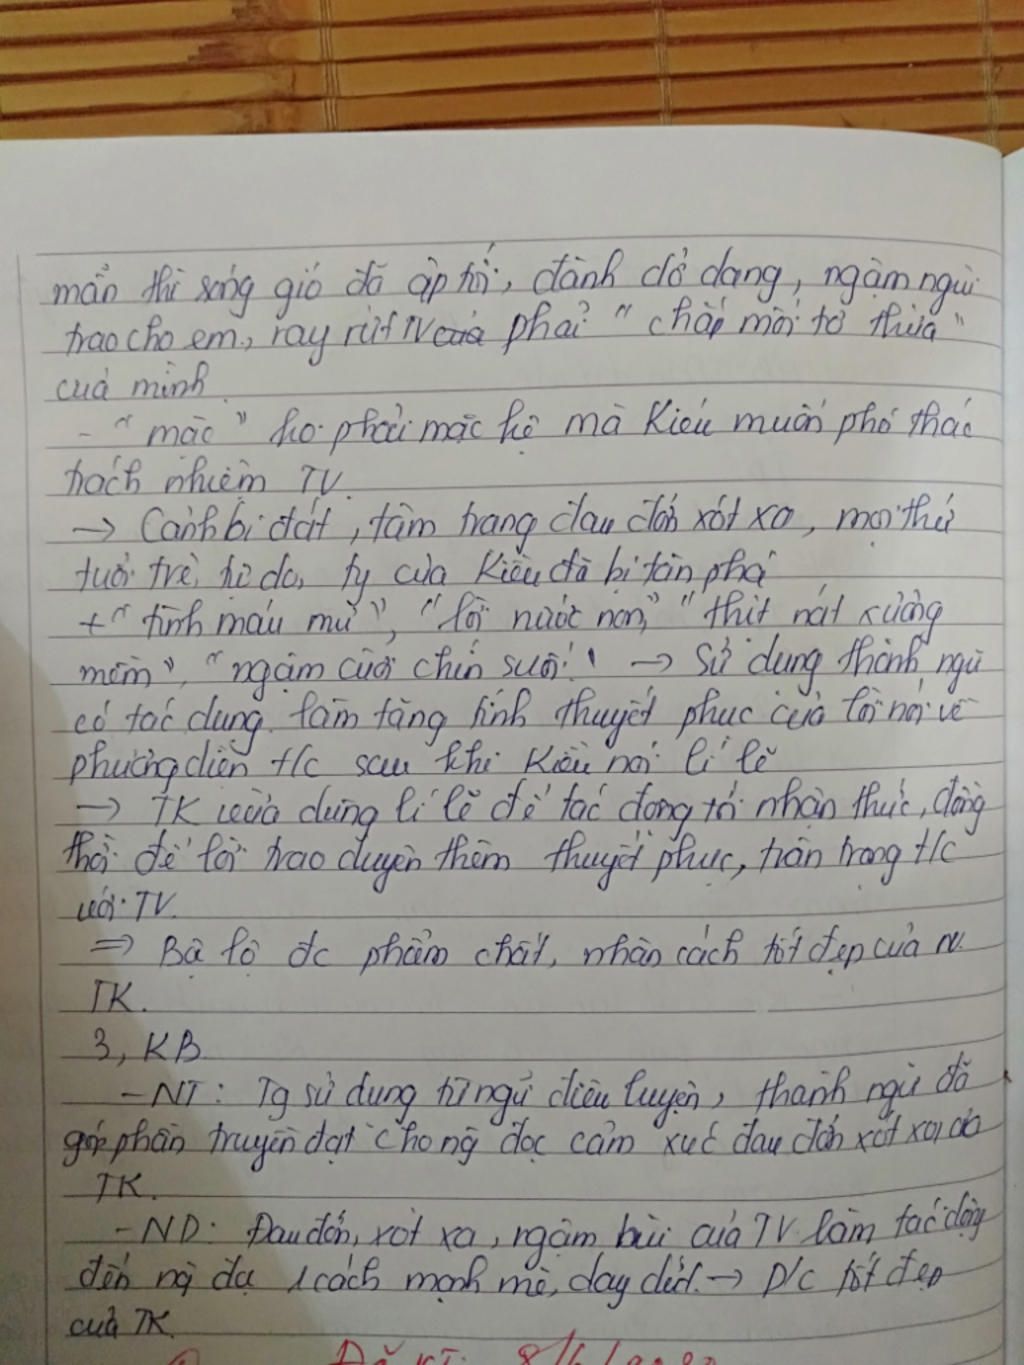 mẩn thì sóng gió đã ập tới, đành dở dang, ngậm ngùi
trao cho em, ray rứt TV phải " chắp mối tơ thừa "
của mình
- " mặc " ko phải mặc kệ mà Kiều muốn phó thác
trách nhiệm TV.
→ Cảnh bi đát, tâm trạng đau đớn xót xa, mọi thứ
tuổi trẻ, tự do, ty của Kiều đã bị tàn phá
+ " tình máu mủ ", " lời nước non," " thịt nát xương
mòn", "ngậm cười chín suối" → Sử dụng thành ngữ
có tác dụng làm tăng tính thuyết phục của lời nói về
phương diện t/c sau khi Kiều nói lí lẽ
→ TK vừa dùng lí lẽ để tác động tới nhận thức, đồng
thời để lời trao duyên thêm thuyết phục, trân trọng t/c
với TV.
⇒ Bộ lộ đc phẩm chất, nhân cách tốt đẹp của nv.
TK.
3, KB
- NT: Tg sử dụng từ ngữ điêu luyện, thành ngữ đã
góp phần truyền đạt cho ng đọc cảm xúc đau đớn xót xa của
TK.
- ND: Đau đớn, xót xa, ngậm bùi của TV làm tác động
đến ng đọc 1 cách mạnh mẽ, day dứt. → P/c tốt đẹp
của TK.